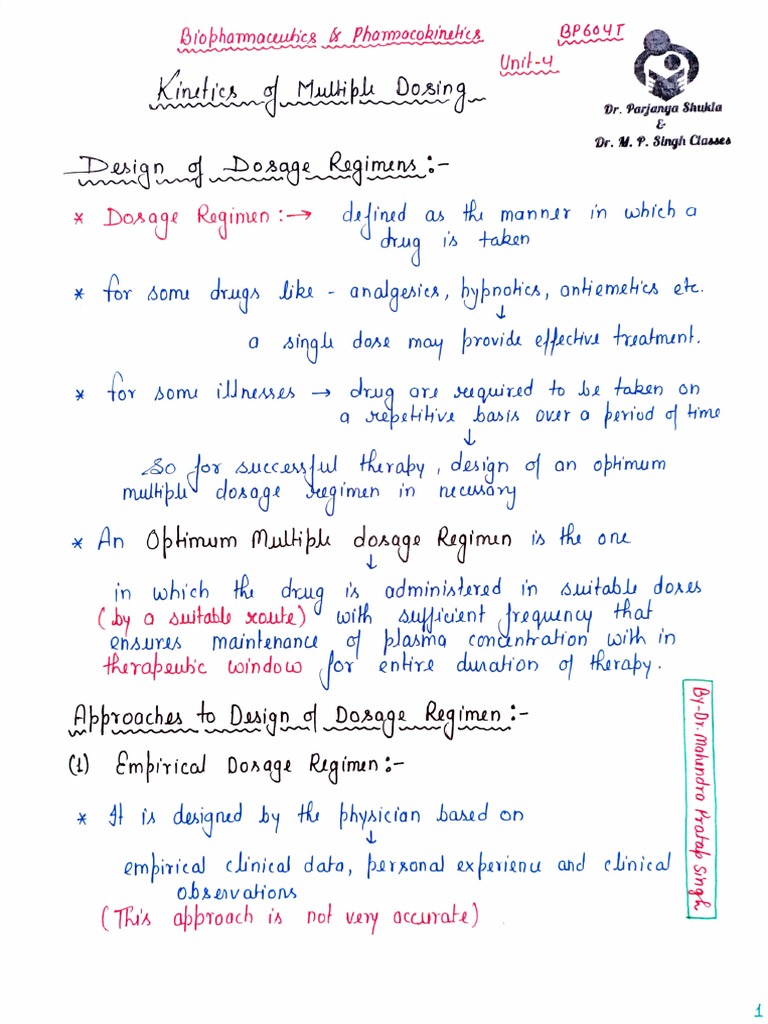 Biopharmaceutics & Pharmacokinetics BP604T
Unit-4
Kinetics of Multiple Dosing
Dr. Parjanya Shukla
&
Dr. M. P. Singh Classes
Design of Dosage Regimens:-
* Dosage Regimen:→ defined as the manner in which a
drug is taken
* for some drugs like - analgesics, hypnotics, antiemetics etc.
↓
a single dose may provide effective treatment.
* for some illnesses → drug are required to be taken on
a repetitive basis over a period of time
↓
So for successful therapy, design of an optimum
multiple dosage regimen in necessary
* An Optimum Multiple dosage Regimen is the one
↓
in which the drug is administered in suitable doses
(by a suitable route) with sufficient frequency that
ensures maintenance of plasma concentration with in
therapeutic window for entire duration of therapy.
Approaches to Design of Dosage Regimen:-
(1) Empirical Dosage Regimen:-
* It is designed by the physician based on
↓
empirical clinical data, personal experience and clinical
observations
(This approach is not very accurate)
By-Dr. Mahendra Pratap Singh
1